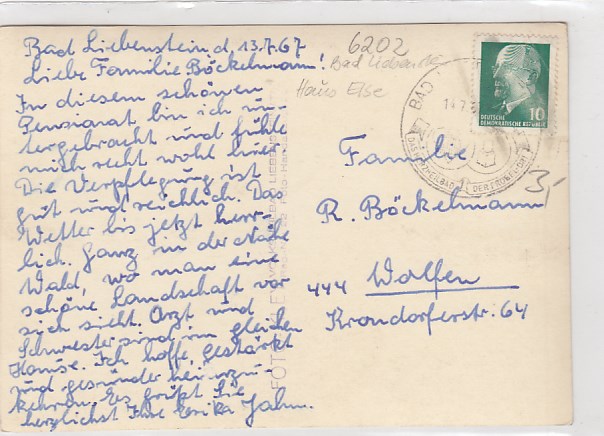 Bad Liebenstein d. 13.7.67
Liebe Familie Böckelmann!
In diesem schönen
Pensionat bin ich un-
tergebracht und fühle
mich recht wohl hier.
Die Verpflegung ist
gut und reichlich. Das
Wetter bis jetzt herr-
lich. Ganz in der Nähe
Wald, wo man eine
schöne Landschaft vor
sich sieht. Arzt und
Schwester sind im gleichen
Hause. Ich hoffe, gestärkt
und gesünder heimzu-
kehren. Es grüßt Sie
herzlichst Ihre Erika Jahn.
6202
Bad Liebenst
Haus Else
BAD
14.7.
DAS HERZHEILBAD DER
10
DEUTSCHE
DEMOKRATISCHE REPUBLIK
3,-
Familie
R. Böckelmann
444 Wolfen
Krondorferstr. 64
FOTO